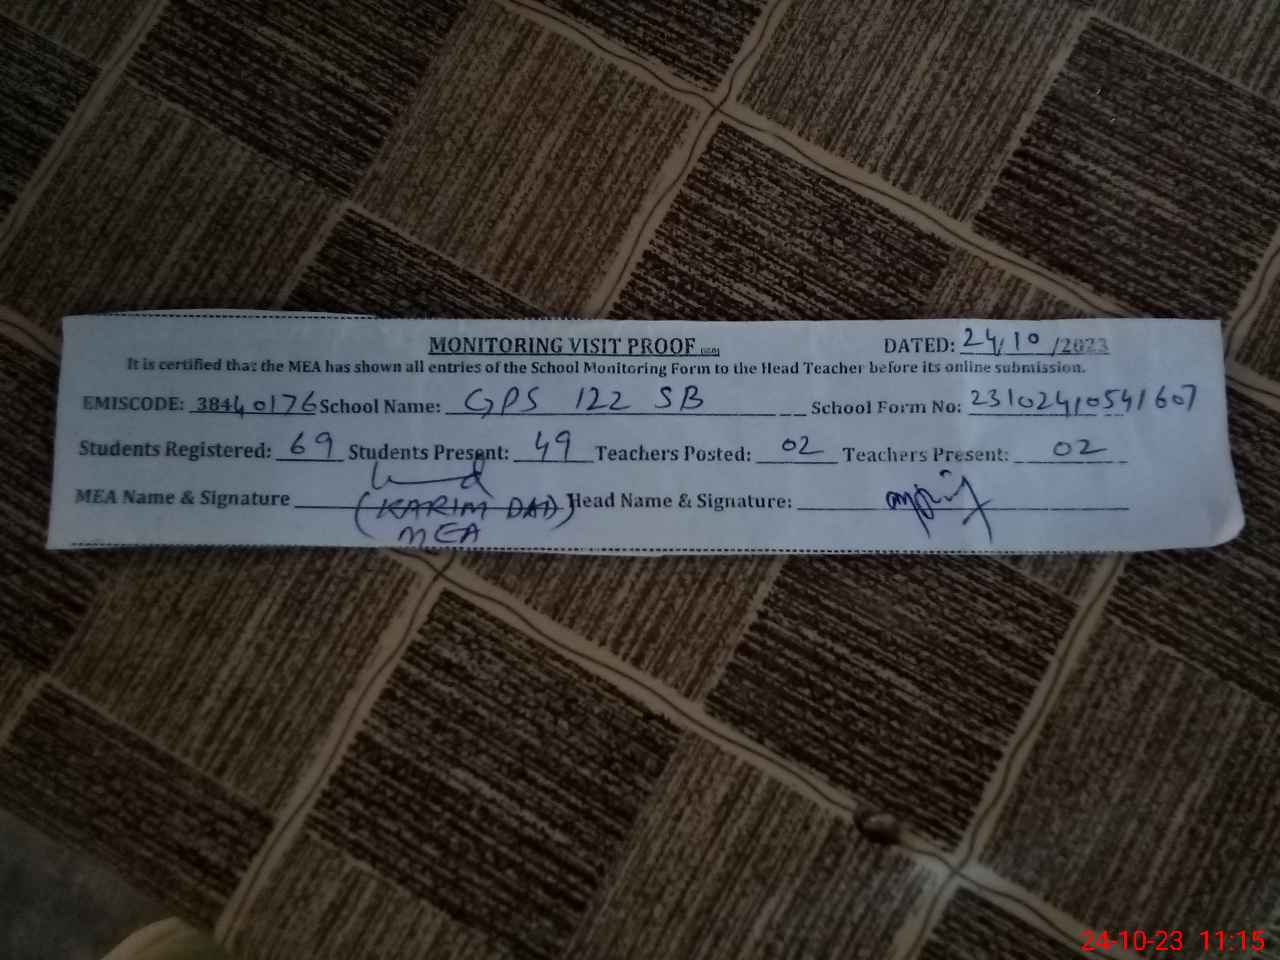 MONITORING VISIT PROOF
DATED: 24/10/2023
It is certified that the MEA has shown all entries of the School Monitoring Form to the Head Teacher before its online submission.
EMISCODE: 38440176 School Name: GPS 122 SB School Form No: 231024110541607
Students Registered: 69 Students Present: 49 Teachers Posted: 02 Teachers Present: 02
MEA Name & Signature (KARIM DAD) Head Name & Signature:
MEA
24-10-23 11:15